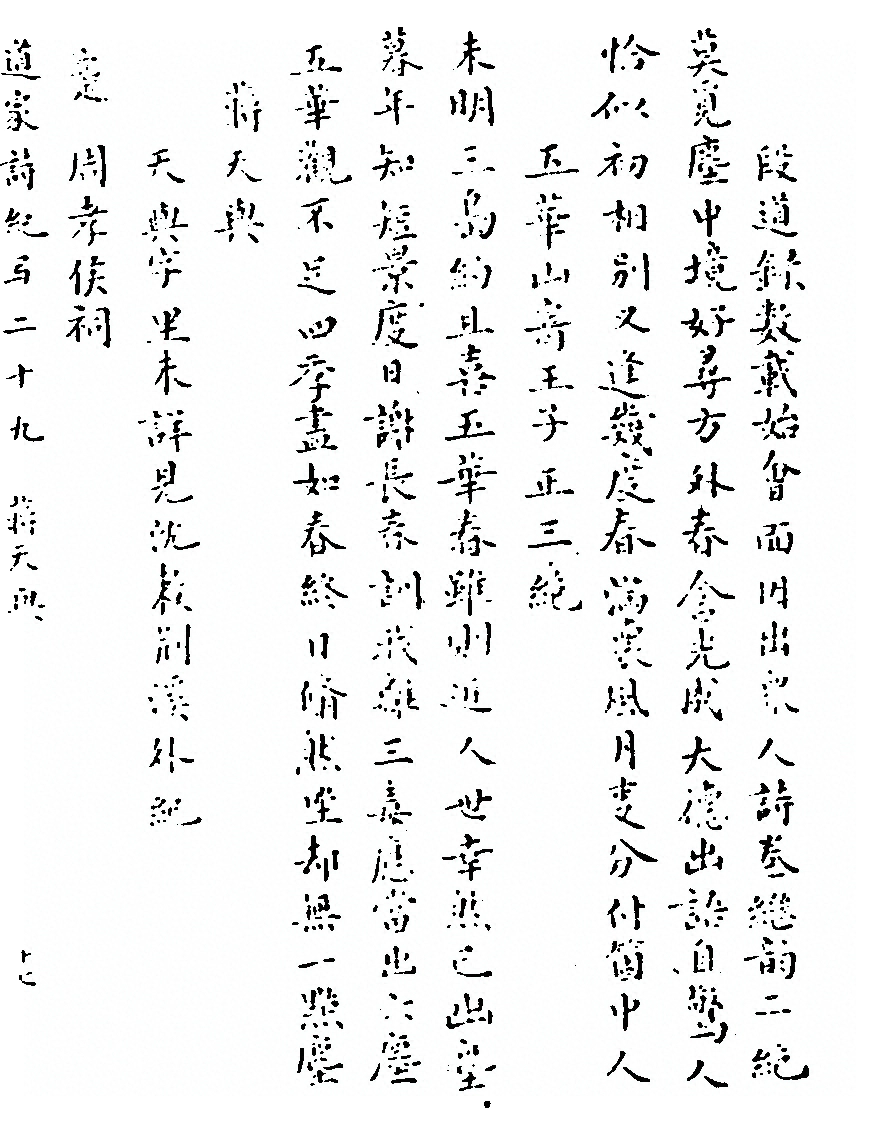 段道錄數載始會面因出衆人詩卷繼韵二絕
莫覓塵中境好尋方外春含光成大德出語自驚人
恰似初相別又逢幾度春滿裏風月吏分付箇中人
五華山寄王子正三絕
未明三島約且喜五華春雖則近人世幸然已出塵
暮年知短景度日謝長春訓我離三毒應當出六塵
五華觀不足四季盡如春終日翛然坐却無一點塵
蔣天與
天與字里未詳見沈敕荆溪外紀
題周孝侯祠
道家詩紀 二十九 蔣天與 十七